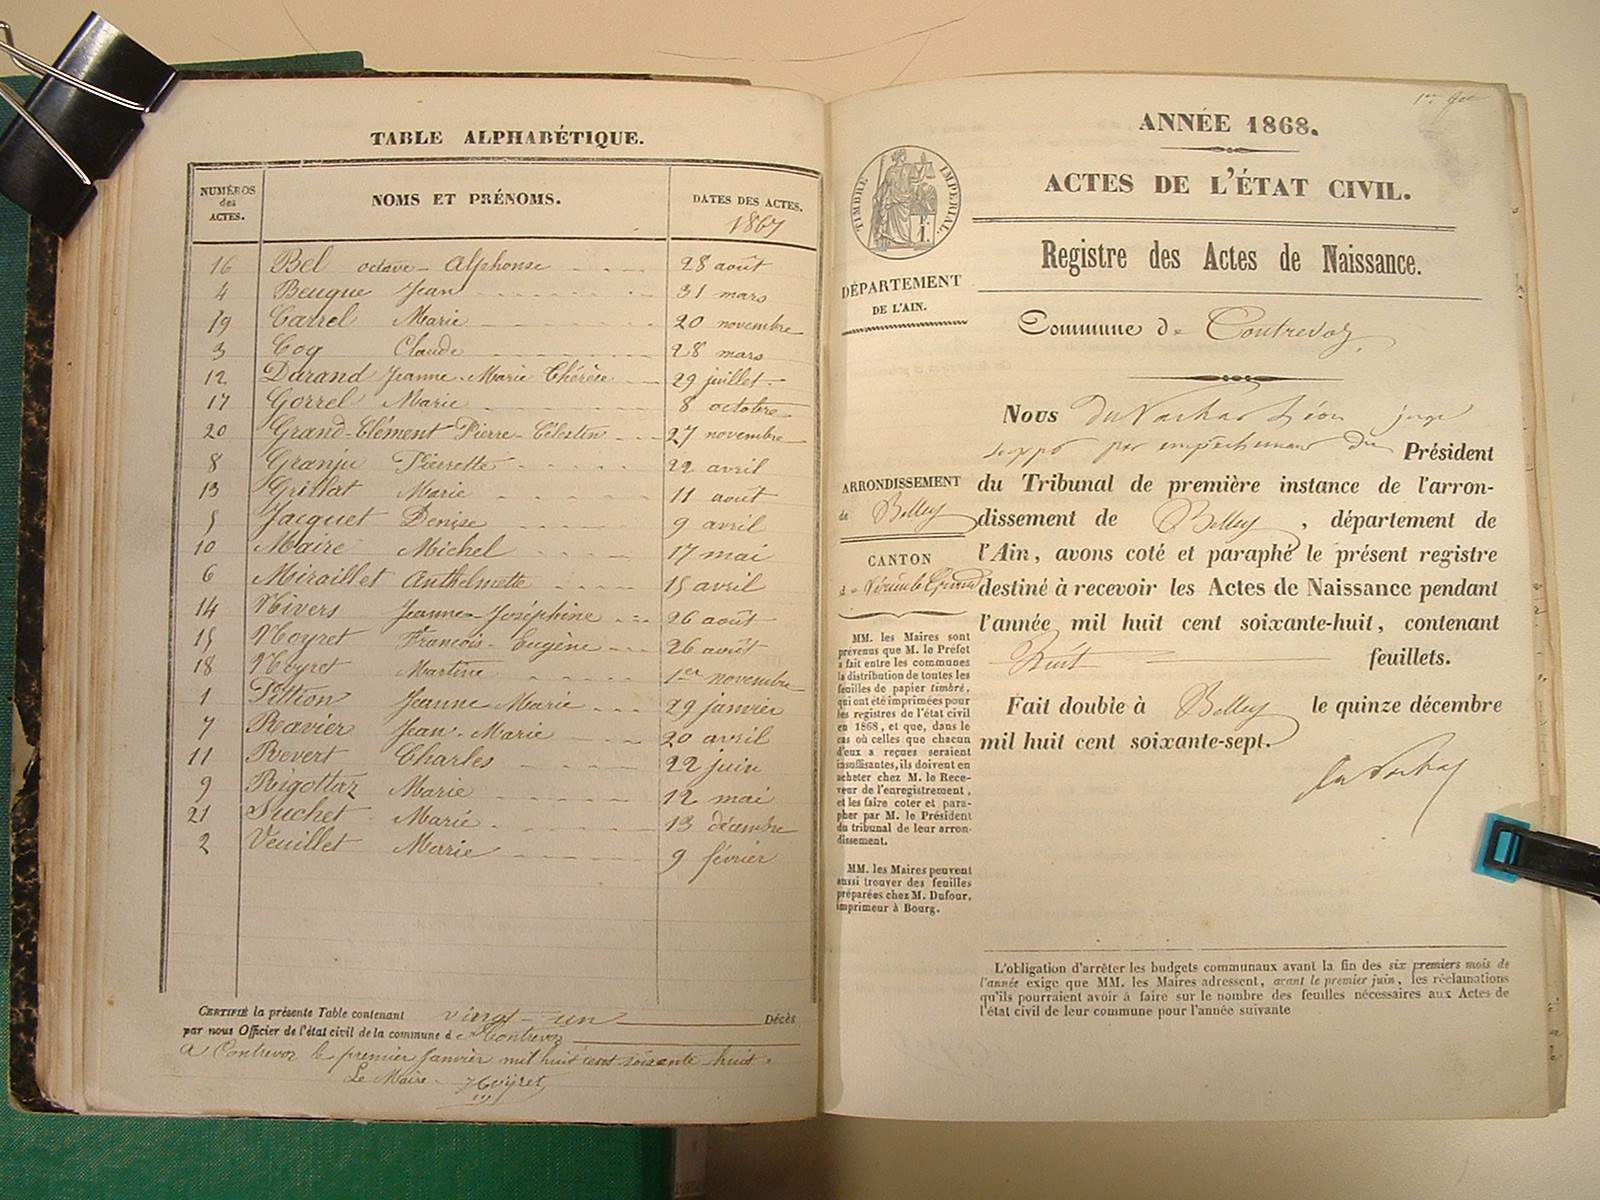 TABLE ALPHABÉTIQUE.
NUMÉROS des ACTES. NOMS ET PRÉNOMS. DATES DES ACTES.
1867
16 Bel octave-Alphonse 28 août
4 Beuque Jean 31 mars
19 Carrel Marie 20 novembre
3 Coq Claude 28 mars
12 Durand Jeanne-Marie Thérèse 29 juillet
17 Gorrel Marie 8 octobre
20 Grand-Clément Pierre-Célestin 27 novembre
8 Granju Pierrette 22 avril
13 Grillat Marie 11 août
5 Jacquet Denise 9 avril
10 Maire Michel 17 mai
6 Miraillet Anthelmette 15 avril
14 Nivers Jeanne-Joséphine 26 août
15 Noyret François-Eugène 26 août
18 Noyret Martine 1er novembre
1 Pittion Jeanne Marie 29 janvier
7 Ravier Jean-Marie 20 avril
11 Revert Charles 22 juin
9 Rigottaz Marie 12 mai
21 Suchet Marie 13 décembre
2 Veuillet Marie 9 février
CERTIFIÉ la présente Table contenant vingt-un Décès
par nous Officier de l'état civil de la commune de Contrevoz
A Contrevoz le premier Janvier mil huit cent soixante-huit.
Le Maire Noyret
ANNÉE 1868.
ACTES DE L'ÉTAT CIVIL.
TIMBRE IMPÉRIAL.
Registre des Actes de Naissance.
DÉPARTEMENT
DE L'AIN.
Commune de Contrevoz
Nous Du Vachat Léon juge
suppt par empêchement du Président
du Tribunal de première instance de l'arron-
dissement de Belley, département de
l'Ain, avons coté et paraphé le présent registre
destiné à recevoir les Actes de Naissance pendant
l'année mil huit cent soixante-huit, contenant
Huit feuillets.
Fait double à Belley le quinze décembre
mil huit cent soixante-sept.
du Vachat
ARRONDISSEMENT
de Belley
CANTON
de Virieu le Grand
MM. les Maires sont
prévenus que M. le Préfet
a fait entre les communes
la distribution de toutes les
feuilles de papier timbré,
qui ont été imprimées pour
les registres de l'état civil
en 1868, et que, dans le
cas où celles que chacun
d'eux a reçues seraient
insuffisantes, ils doivent en
acheter chez M. le Rece-
veur de l'enregistrement,
et les faire coter et para-
pher par M. le Président
du tribunal de leur arron-
dissement.
MM. les Maires peuvent
aussi trouver des feuilles
préparées chez M. Dufour,
imprimeur à Bourg.
L'obligation d'arrêter les budgets communaux avant la fin des six premiers mois de
l'année exige que MM. les Maires adressent, avant le premier juin, les réclamations
qu'ils pourraient avoir à faire sur le nombre des feuilles nécessaires aux Actes de
l'état civil de leur commune pour l'année suivante